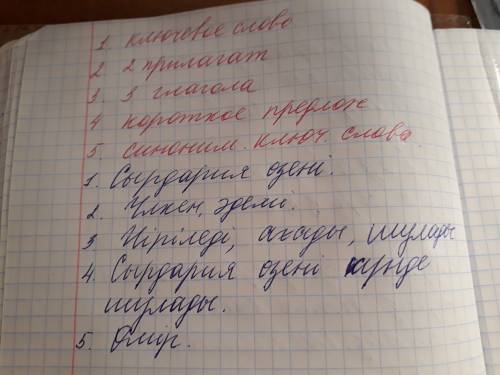 1 ключевое слово
2. 2 прилагат
3. 3 глагола
4 короткое предлож
5. синоним. ключ. слова.
1. Сырдария өзені.
2. Үлкен, әдемі.
3 Иіріледі, ағады, шулады
4. Сырдария өзені күнде
шулады.
5. Өмір.